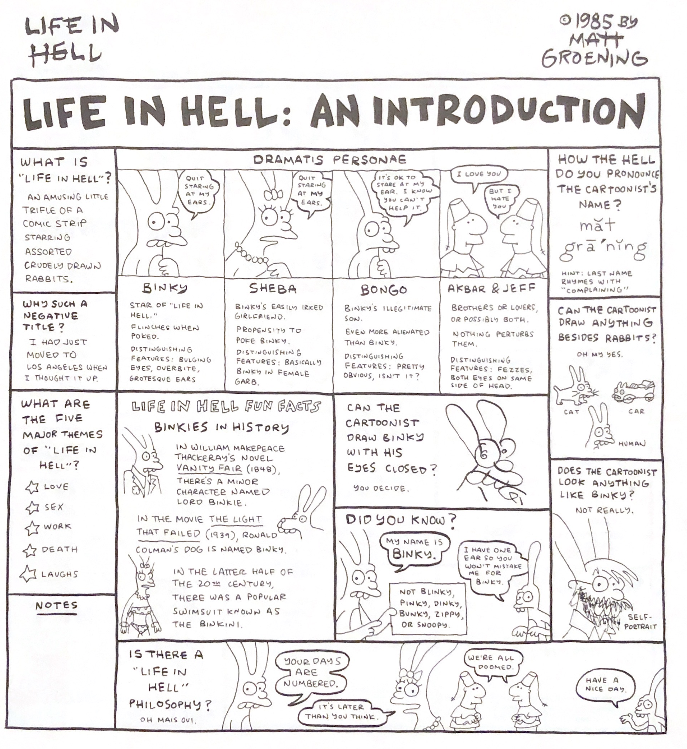 LIFE IN
HELL
© 1985 BY
MATT
GROENING
LIFE IN HELL: AN INTRODUCTION
WHAT IS
"LIFE IN HELL"?
AN AMUSING LITTLE
TRIFLE OF A
COMIC STRIP
STARRING
ASSORTED
CRUDELY DRAWN
RABBITS.
WHY SUCH A
NEGATIVE
TITLE?
I HAD JUST
MOVED TO
LOS ANGELES WHEN
I THOUGHT IT UP.
DRAMATIS PERSONAE
QUIT
STARING
AT MY
EARS.
BINKY
STAR OF "LIFE IN
HELL."
FLINCHES WHEN
POKED.
DISTINGUISHING
FEATURES: BULGING
EYES, OVERBITE,
GROTESQUE EARS
QUIT
STARING
AT MY
EARS.
SHEBA
BINKY'S EASILY IRKED
GIRLFRIEND.
PROPENSITY TO
POKE BINKY.
DISTINGUISHING
FEATURES: BASICALLY
BINKY IN FEMALE
GARB.
IT'S OK TO
STARE AT MY
EAR. I KNOW
YOU CAN'T
HELP IT.
BONGO
BINKY'S ILLEGITIMATE
SON.
EVEN MORE ALIENATED
THAN BINKY.
DISTINGUISHING
FEATURES: PRETTY
OBVIOUS, ISN'T IT?
I LOVE YOU
BUT I
HATE
YOU
AKBAR & JEFF
BROTHERS OR LOVERS,
OR POSSIBLY BOTH.
NOTHING PERTURBS
THEM.
DISTINGUISHING
FEATURES: FEZZES,
BOTH EYES ON SAME
SIDE OF HEAD.
HOW THE HELL
DO YOU PRONOUNCE
THE CARTOONIST'S
NAME?
măt
grā'nĭng
HINT: LAST NAME
RHYMES WITH
"COMPLAINING"
CAN THE CARTOONIST
DRAW ANYTHING
BESIDES RABBITS?
OH MY YES.
CAT
CAR
HUMAN
WHAT ARE
THE FIVE
MAJOR THEMES
OF "LIFE IN
HELL"?
LOVE
SEX
WORK
DEATH
LAUGHS
NOTES
LIFE IN HELL FUN FACTS
BINKIES IN HISTORY
IN WILLIAM MAKEPEACE
THACKERAY'S NOVEL
VANITY FAIR (1848),
THERE'S A MINOR
CHARACTER NAMED
LORD BINKIE.
IN THE MOVIE THE LIGHT
THAT FAILED (1939), RONALD
COLMAN'S DOG IS NAMED BINKY.
IN THE LATTER HALF OF
THE 20TH CENTURY,
THERE WAS A POPULAR
SWIMSUIT KNOWN AS
THE BINKINI.
CAN THE
CARTOONIST
DRAW BINKY
WITH HIS
EYES CLOSED?
YOU DECIDE.
DID YOU KNOW?
MY NAME IS
BINKY.
NOT BLINKY,
PINKY, DINKY,
BUNKY, ZIPPY,
OR SNOOPY.
I HAVE ONE
EAR SO YOU
WON'T MISTAKE
ME FOR
BINKY.
DOES THE CARTOONIST
LOOK ANYTHING
LIKE BINKY?
NOT REALLY.
SELF-
PORTRAIT
IS THERE A
"LIFE IN
HELL"
PHILOSOPHY?
OH MAIS OUI.
YOUR DAYS
ARE
NUMBERED.
IT'S LATER
THAN YOU THINK.
WE'RE ALL
DOOMED.
HAVE A
NICE DAY.